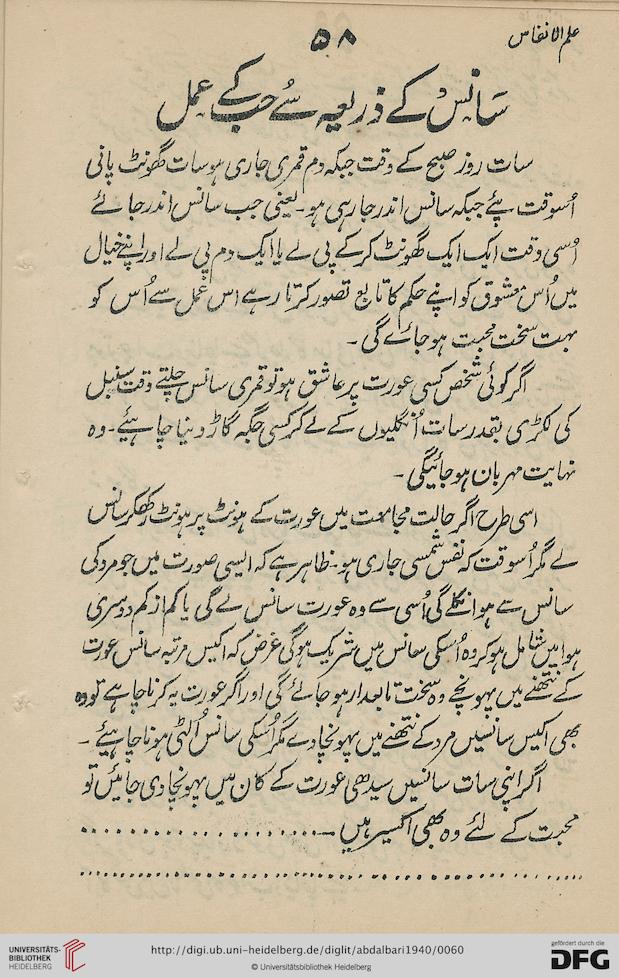 علم الانفاس
۵۸
سانس کے ذریعہ سے حب کے عمل
سات روز صبح کے وقت جبکہ دم قمری جاری ہو سات گھونٹ پانی
اُسوقت پئے جبکہ سانس اندر جا رہی ہو۔ یعنی جب سانس اندر جائے
اُسی وقت ایک ایک گھونٹ کر کے پی لے یا ایک دم پی لے اور اپنے خیال
میں اُس معشوق کو اپنے حکم کا تابع تصور کرتا رہے اس عمل سے اُس کو
بہت سخت محبت ہو جائے گی۔
اگر کوئی شخص کسی عورت پر عاشق ہو تو قمری سانس چلتے وقت سنبل
کی لکڑی بقدر سات اُنگلیوں کے لے کر کسی جگہ گاڑ دینا چاہیئے۔ وہ
نہایت مہربان ہو جائیگی۔
اسی طرح اگر حالت مجامعت میں عورت کے ہونٹ پر ہونٹ رکھکر سانس
لے مگر اُسوقت کہ نفس شمسی جاری ہو۔ ظاہر ہے کہ ایسی صورت میں جو مرد کی
سانس سے ہوا نکلے گی اُسی سے وہ عورت سانس لے گی یا کم از کم دوسری
ہوا میں شامل ہو کر وہ اُسکی سانس میں شریک ہو گی غرض کہ اکیس مرتبہ سانس عورت
کے نتھنے میں پہونچے وہ سخت تابعدار ہو جائے گی اور اگر عورت یہ کرنا چاہے تو وہ
بھی اکیس سانسیں مرد کے نتھنے میں پہونچا دے مگر اُسکی سانس اُلٹی ہونا چاہیئے۔
اگر اپنی سات سانسیں سیدھی عورت کے کان میں پہونچا دی جائیں تو
محبت کے لئے وہ بھی اکسیر ہیں۔
UNIVERSITÄTS-
BIBLIOTHEK
HEIDELBERG
http://digi.ub.uni-heidelberg.de/diglit/abdalbari1940/0060
© Universitätsbibliothek Heidelberg
gefördert durch die
DFG